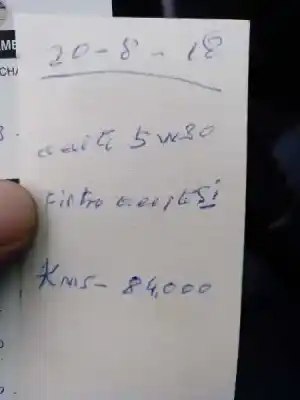 AME
CHA
20-8-18
aceite 5w30
Filtro aceite Si
Kms- 84.000